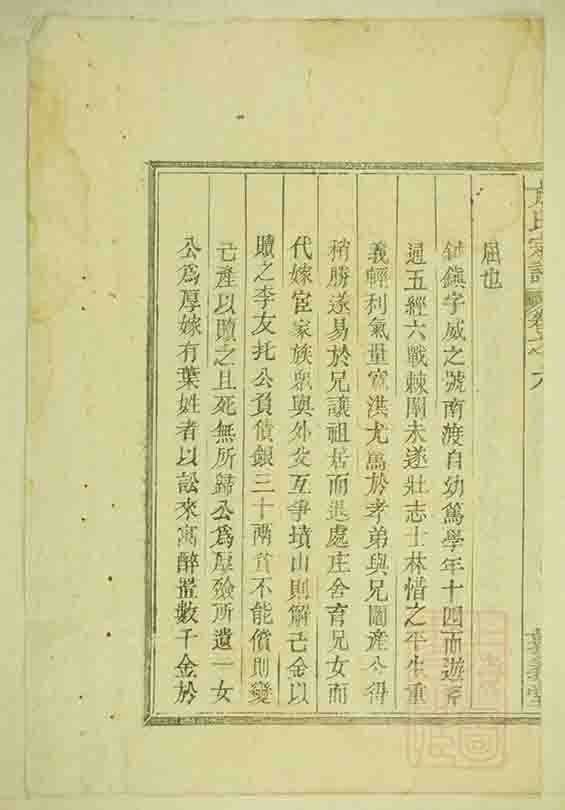 屈也
鎮字威之號南渡自幼篤學年十四而遊
通五經六戰棘闈未遂壯志士林惜之平生重
義輕利氣量洪尤篤於孝弟與兄鬮產公得
稍勝遂易於兄讓祖居而退處庄舍育兄女而
代嫁宦家族衆與外姓互爭墳山則解己金以
贖之李友托公負債銀三十兩貧不能償則變
己產以贖之且死無所歸公爲厚殮所遺一女
公爲厚嫁有葉姓者以訟來寓醉置數千金於